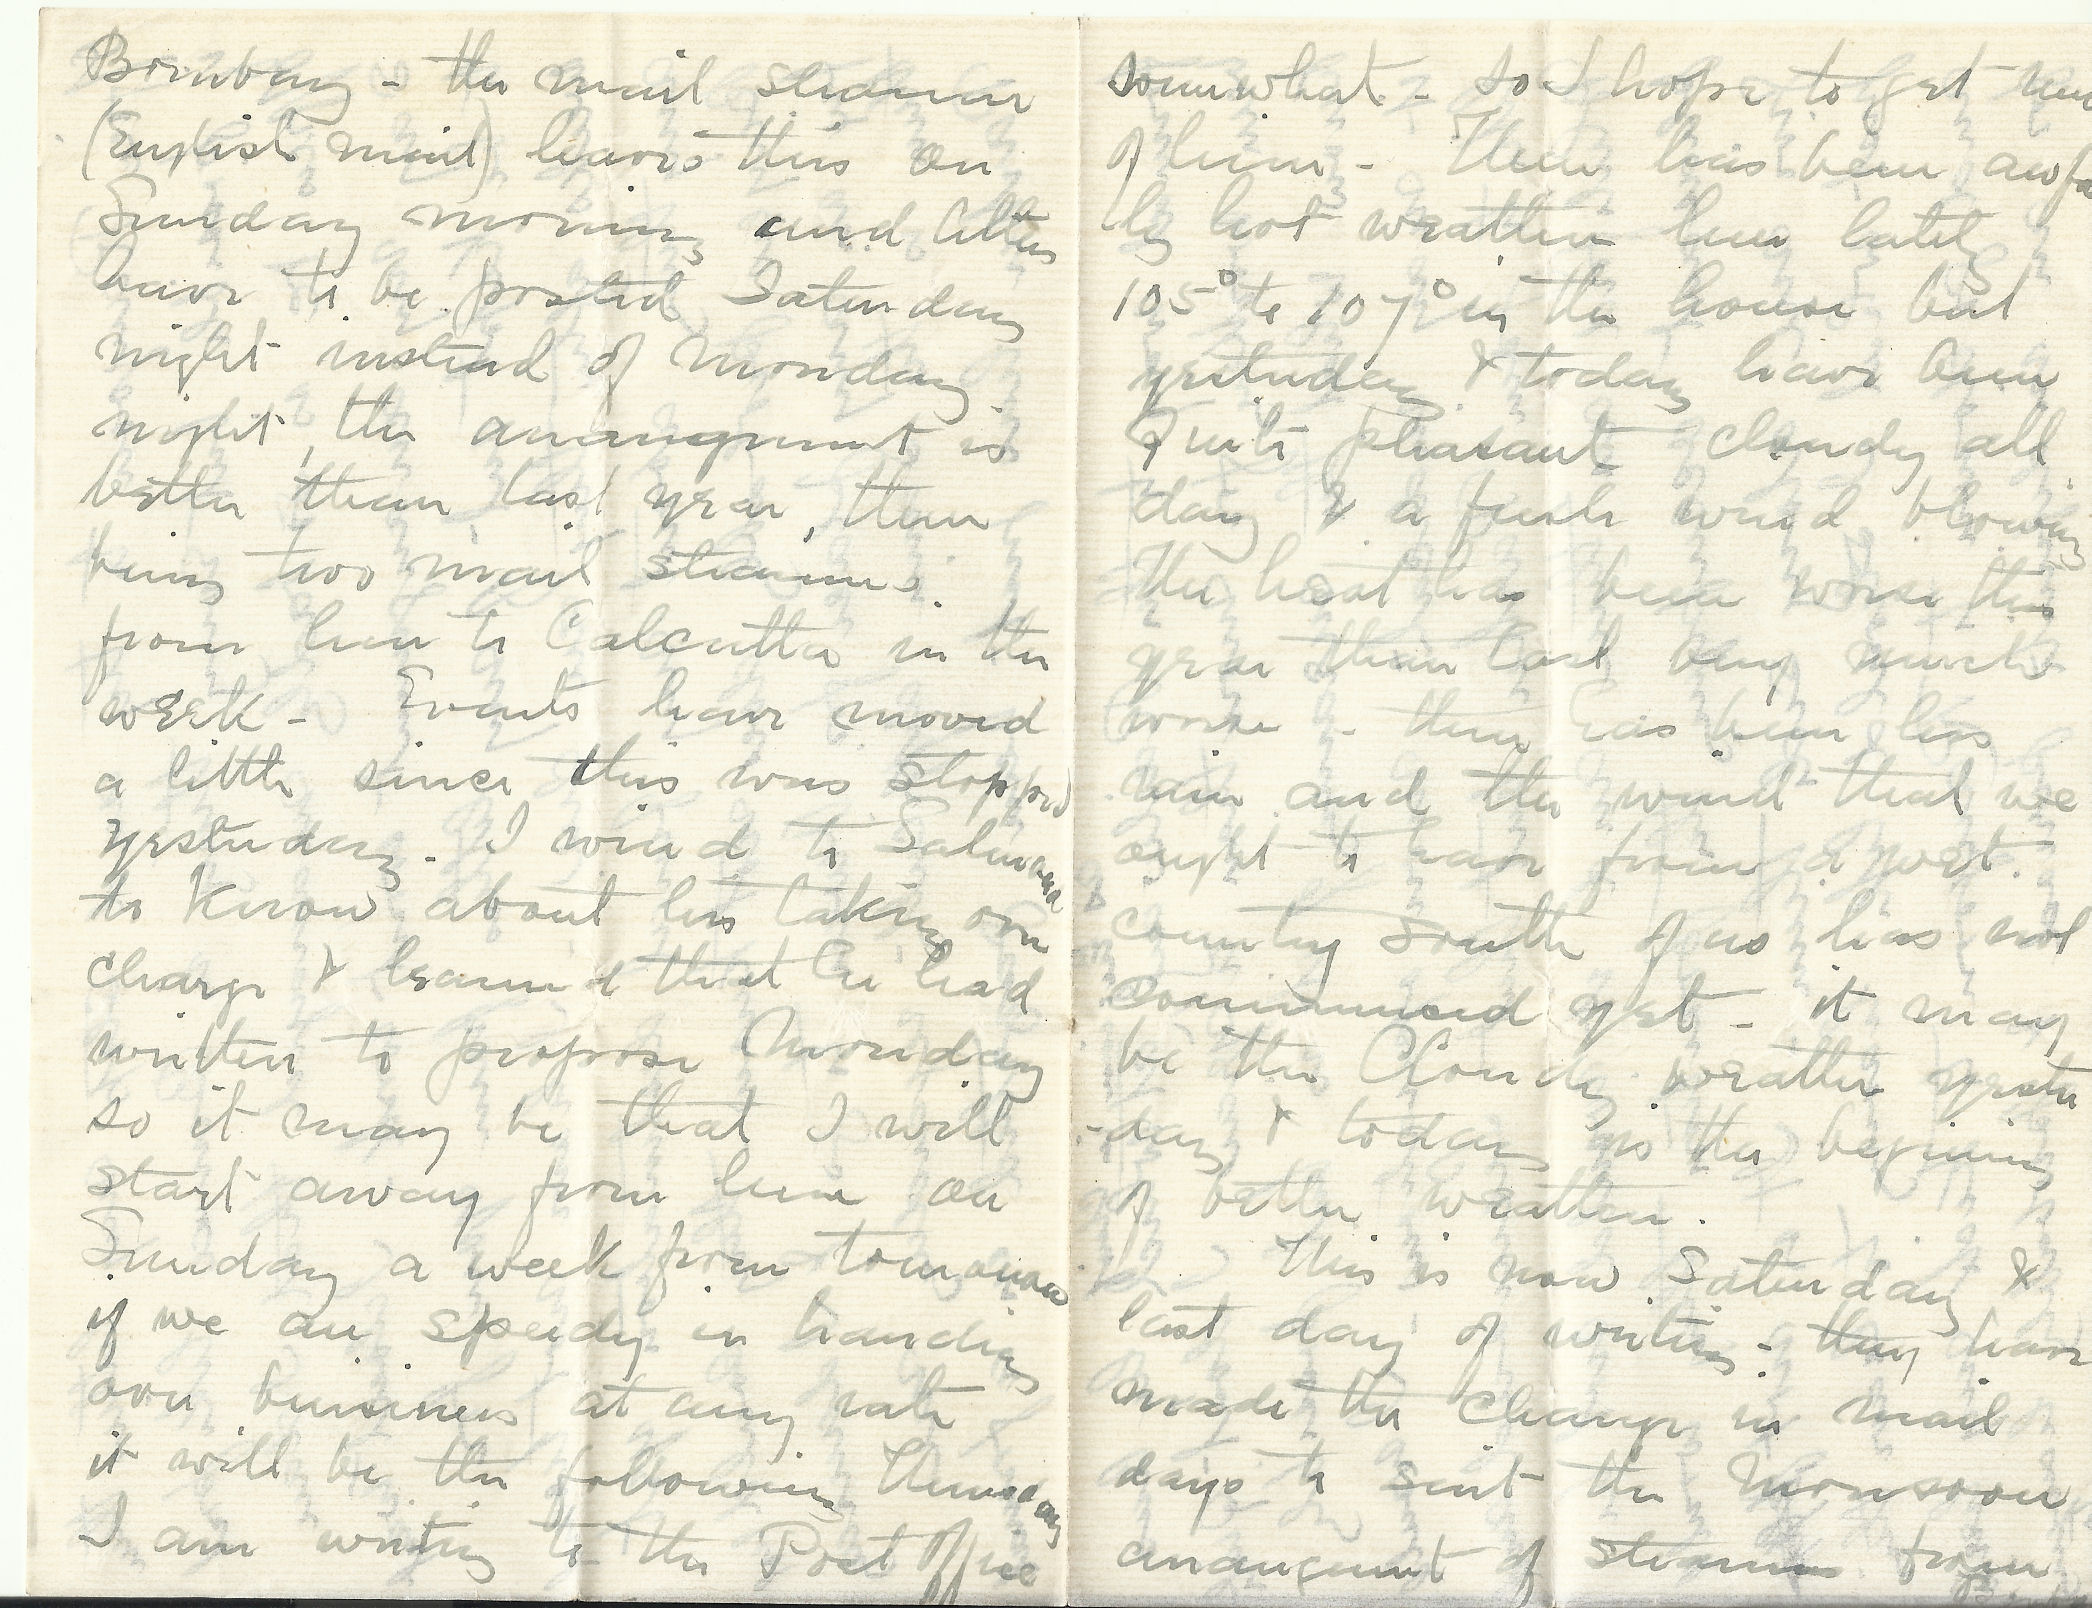 Bombay - the mail steamer
(English mail) leaves this on
Sunday morning and letters
have to be posted Saturday
night instead of Monday
night, the arrangement is
better than last year, there
being two mail steamers
from here to Calcutta in the
week - Events have moved
a little since this was stopped
yesterday - I wired to
to know about his taking over
charge & learned that he had
written to propose Monday
so it may be that I will
start away from here on
Sunday a week from tomorrow
if we are speedy in handing
over business at any rate
it will be the following Thursday
I am writing to the Post Office
somewhat - so I hope to get
of him - There has been awful
ly hot weather here lately
105° to 107° in the house but
yesterday & today have been
quite pleasant cloudy all
day & a fresh wind blowing
The heat has been worse this
year than last being much
worse - there has been less
rain and the wind that we
ought to have from a wet
country south of us has not
commenced yet - it may
be the cloudy weather yester
-day & today is the begining
of better weather.
This is now Saturday &
last day of writing - they have
made the change in mail
days to suit the Monsoon
arrangement of steamers from